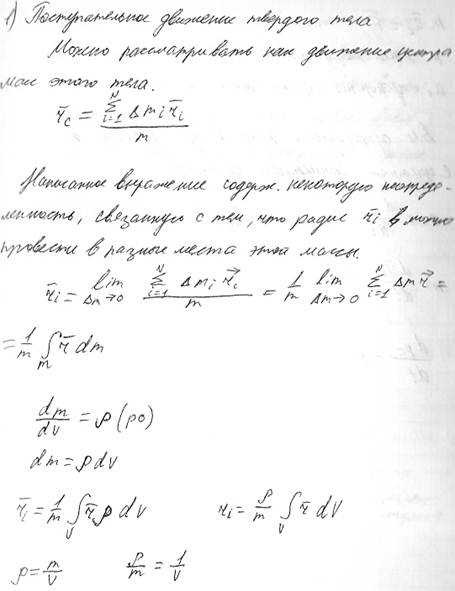 1) Поступательное движение твердого тела
Можно рассматривать как движение центра
масс этого тела.
r̄c = Σ(i=1..N) Δmi r̄i / m
Написанное выражение содерж. некоторую неопреде-
ленность, связанную с тем, что радиус r̄i в можно
провести в разные места этой массы.
r̄i = lim(Δm→0) Σ(i=1..N) Δmi r⃗i / m = 1/m lim(Δm→0) Σ(i=1..N) Δm r⃗ =
= 1/m ∫m r̄ dm
dm/dv = ρ (ро)
dm = ρdv
r̄i = 1/m ∫v r̄ρ dv ri = ρ/m ∫v r̄ dV
ρ = m/V ρ/m = 1/V